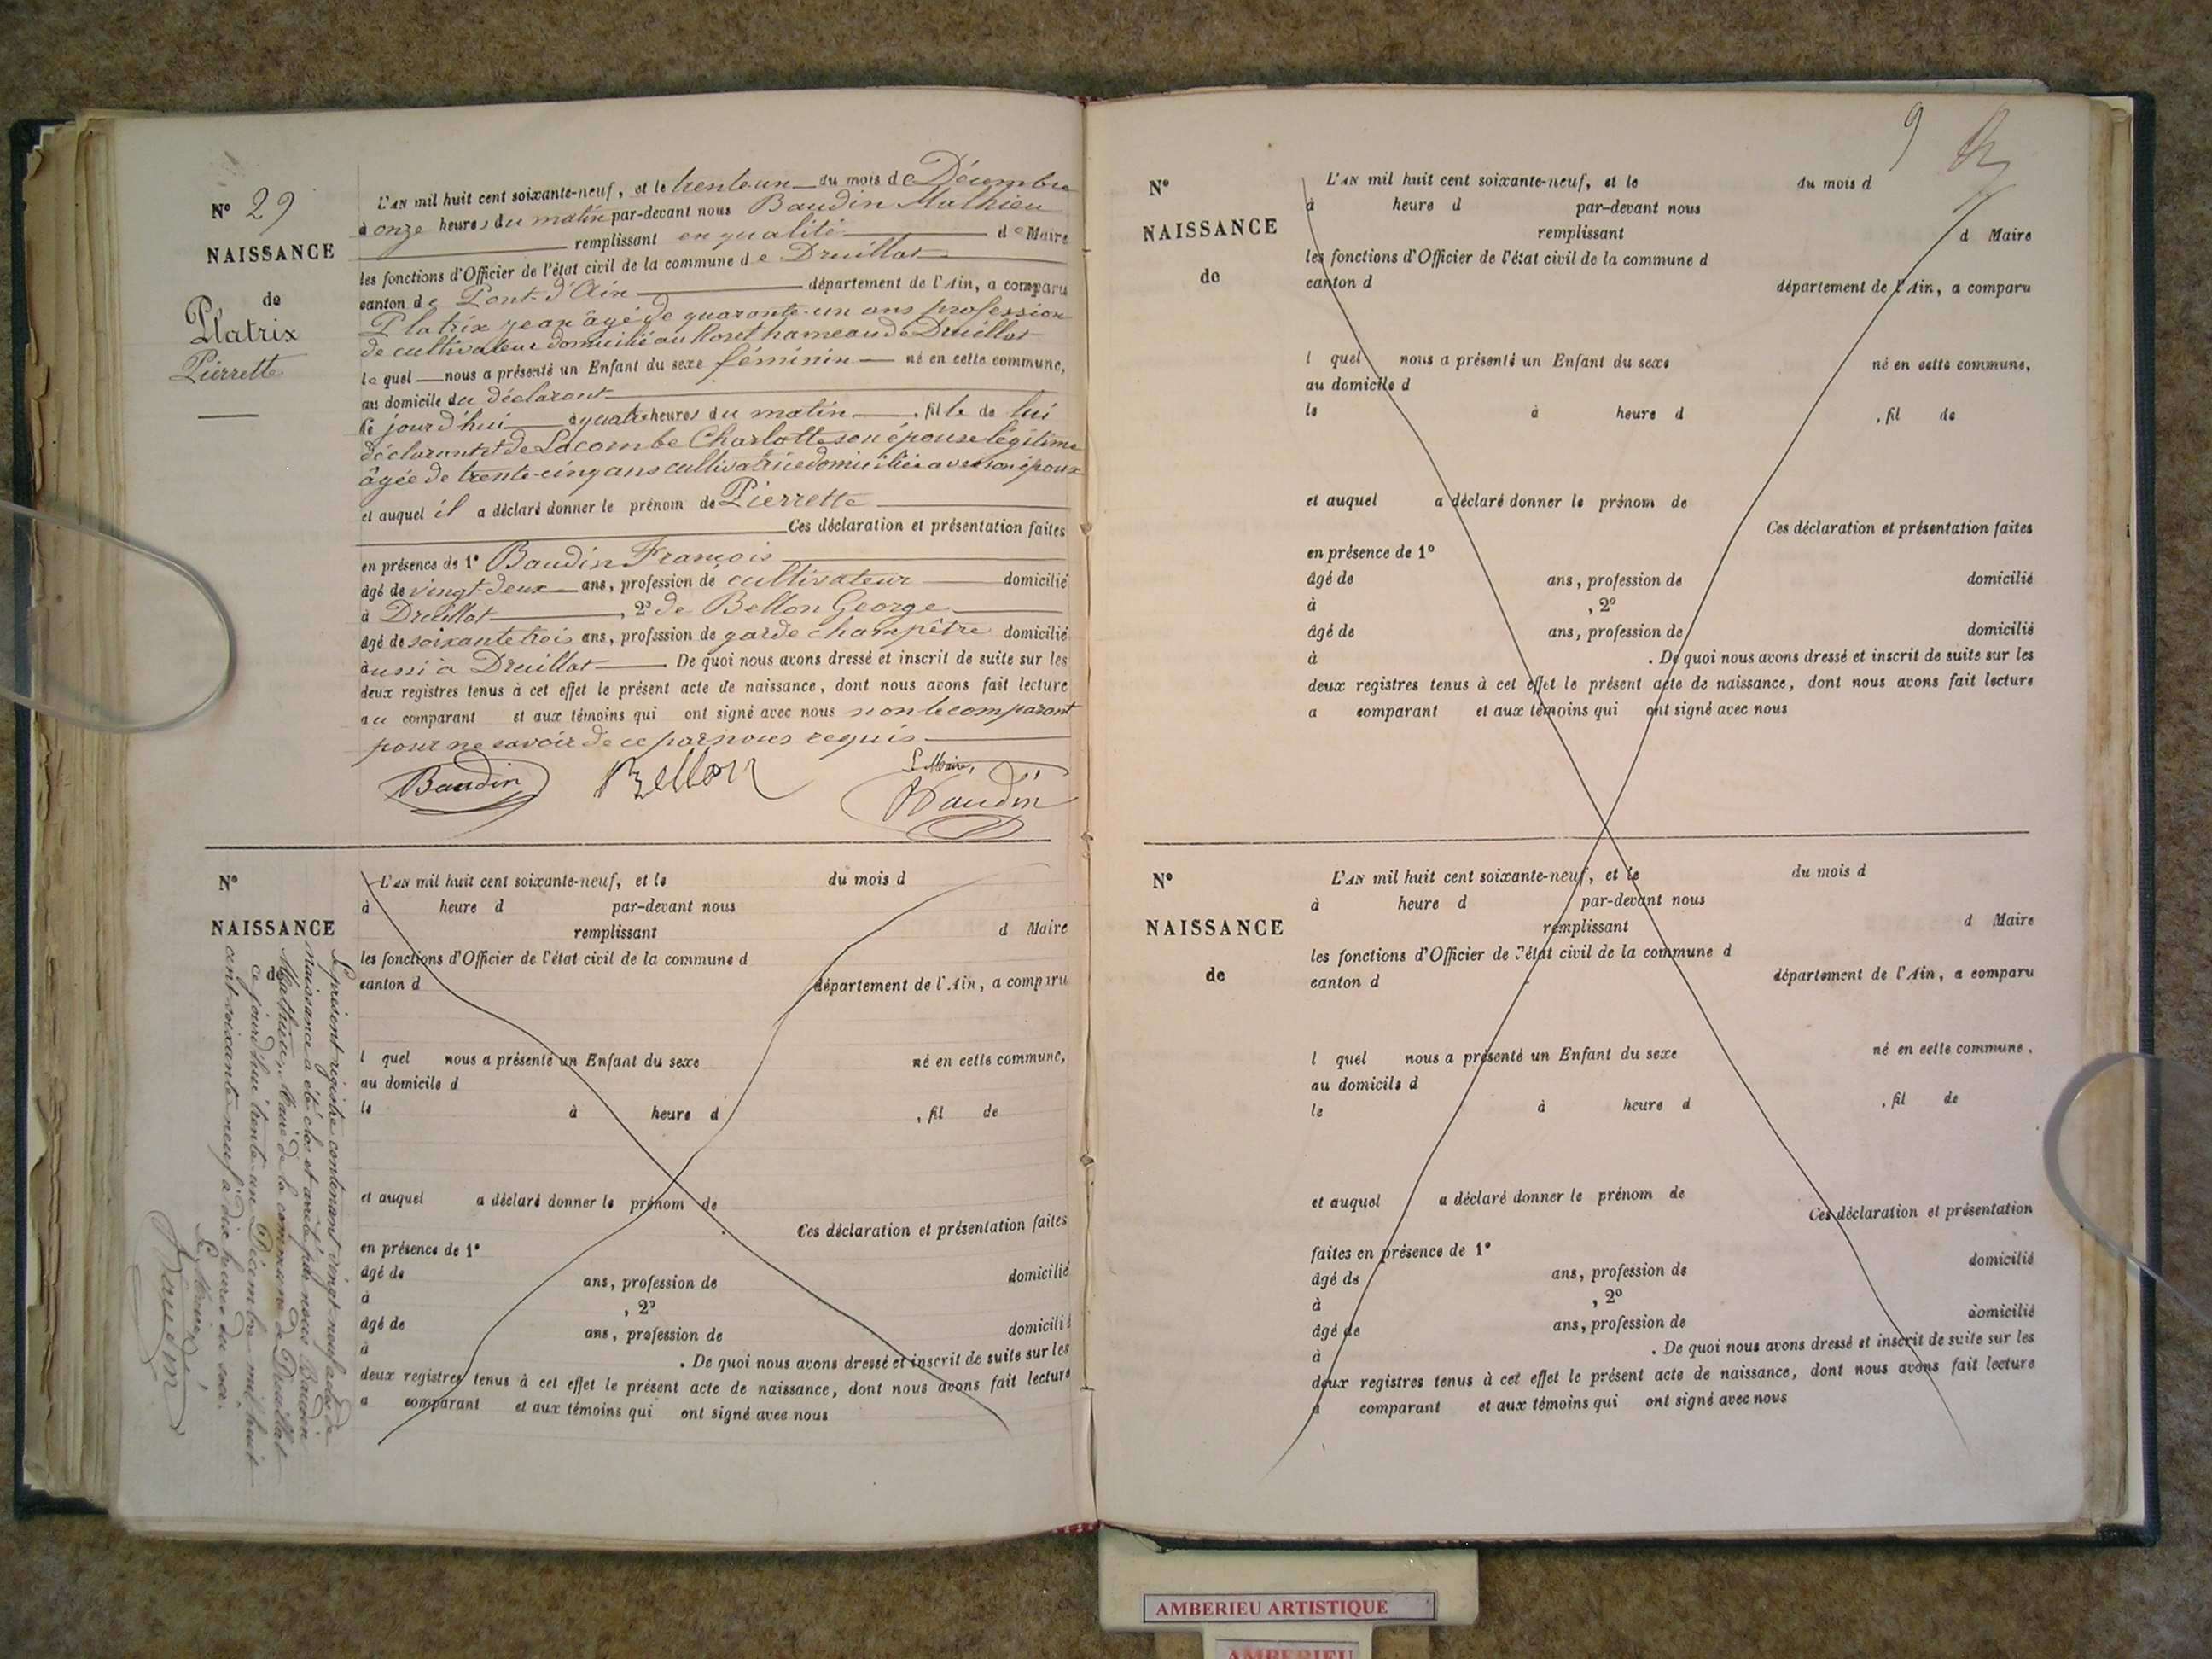 N° 29
NAISSANCE
de
Platrix
Pierrette
L'AN mil huit cent soixante-neuf, et le trente un du mois de Décembre
à onze heures du matin par-devant nous Baudin Mathieu
remplissant en qualité de Maire
les fonctions d'Officier de l'état civil de la commune de Druillat
canton de Pont-d'Ain département de l'Ain, a comparu
Platrix jean âgé de quarante-un ans profession
de cultivateur domicilié au Roset hameau de Druillat
lequel nous a présenté un Enfant du sexe féminin né en cette commune,
au domicile du déclarant
ce jourd'hui à quatre heures du matin, fille de lui
déclarant et de Lacombe Charlotte son épouse légitime
âgée de trente-cinq ans cultivatrice domiciliée avec son époux
et auquel il a déclaré donner le prénom de Pierrette
Ces déclaration et présentation faites
en présence de 1° Baudin François
âgé de vingt-deux ans, profession de cultivateur domicilié
à Druillat, 2° de Bellon George
âgé de soixante trois ans, profession de garde champêtre domicilié
aussi à Druillat. De quoi nous avons dressé et inscrit de suite sur les
deux registres tenus à cet effet le présent acte de naissance, dont nous avons fait lecture
au comparant et aux témoins qui ont signé avec nous non le comparant
pour ne savoir de ce par nous requis
Baudin Bellon Le Maire,
Baudin
N°
NAISSANCE
de
L'AN mil huit cent soixante-neuf, et le du mois d
à heure d par-devant nous
remplissant d Maire
les fonctions d'Officier de l'état civil de la commune d
canton d département de l'Ain, a comparu
l quel nous a présenté un Enfant du sexe né en cette commune,
au domicile d
le à heure d , fil de
et auquel a déclaré donner le prénom de
Ces déclaration et présentation faites
en présence de 1°
âgé de ans, profession de domicilié
à , 2°
âgé de ans, profession de domicilié
à . De quoi nous avons dressé et inscrit de suite sur les
deux registres tenus à cet effet le présent acte de naissance, dont nous avons fait lecture
a comparant et aux témoins qui ont signé avec nous
Le présent registre contenant vingt-neuf actes de
naissance a été clos et arrêté par nous Baudin
Mathieu, Maire de la commune de Druillat
ce jourd'hui trente-un Décembre mil huit
cent soixante neuf à dix heures du soir.
Le Maire,
Baudin
9
N°
NAISSANCE
de
L'AN mil huit cent soixante-neuf, et le du mois d
à heure d par-devant nous
remplissant d Maire
les fonctions d'Officier de l'état civil de la commune d
canton d département de l'Ain, a comparu
l quel nous a présenté un Enfant du sexe né en cette commune,
au domicile d
le à heure d , fil de
et auquel a déclaré donner le prénom de
Ces déclaration et présentation faites
en présence de 1°
âgé de ans, profession de domicilié
à , 2°
âgé de ans, profession de domicilié
à . De quoi nous avons dressé et inscrit de suite sur les
deux registres tenus à cet effet le présent acte de naissance, dont nous avons fait lecture
a comparant et aux témoins qui ont signé avec nous
N°
NAISSANCE
de
L'AN mil huit cent soixante-neuf, et le du mois d
à heure d par-devant nous
remplissant d Maire
les fonctions d'Officier de l'état civil de la commune d
canton d département de l'Ain, a comparu
l quel nous a présenté un Enfant du sexe né en cette commune,
au domicile d
le à heure d , fil de
et auquel a déclaré donner le prénom de
Ces déclaration et présentation
faites en présence de 1° domicilié
âgé de ans, profession de
à , 2° domicilié
âgé de ans, profession de
à . De quoi nous avons dressé et inscrit de suite sur les
deux registres tenus à cet effet le présent acte de naissance, dont nous avons fait lecture
a comparant et aux témoins qui ont signé avec nous
AMBERIEU ARTISTIQUE
AMBERIEU